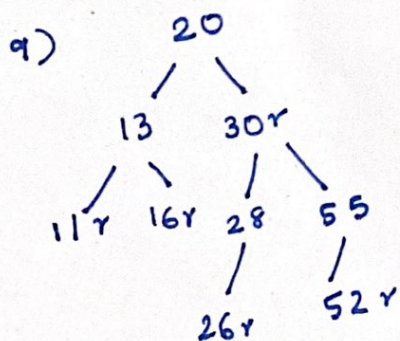 9)
20
13 30r
11r 16r 28 55
26r 52r